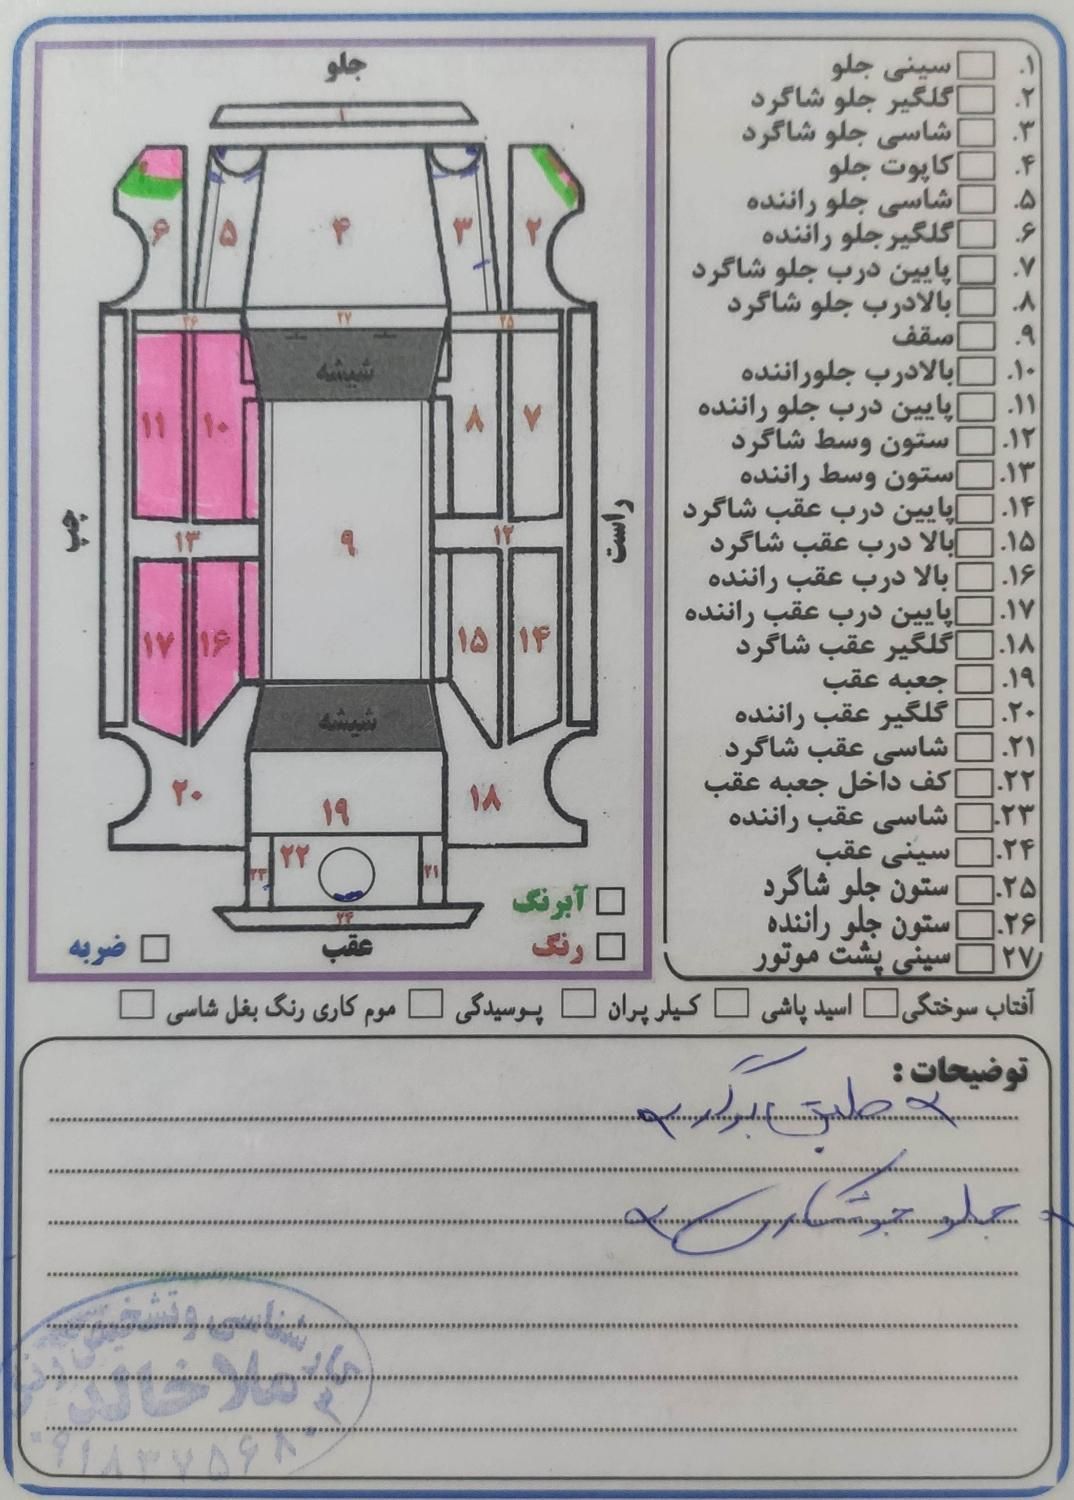 جلو
۱
۶
۵
۴
۳
۲
۲۶
۲۷
۲۵
شیشه
۱۱
۱۰
۸
۷
چپ
راست
۱۳
۹
۱۲
۱۷
۱۶
۱۵
۱۴
شیشه
۲۰
۱۹
۱۸
۲۳
۲۲
۲۱
۲۴
عقب
آبرنگ
رنگ
ضربه
۱. سینی جلو
۲. گلگیر جلو شاگرد
۳. شاسی جلو شاگرد
۴. کاپوت جلو
۵. شاسی جلو راننده
۶. گلگیرجلو راننده
۷. پایین درب جلو شاگرد
۸. بالادرب جلو شاگرد
۹. سقف
۱۰. بالادرب جلوراننده
۱۱. پایین درب جلو راننده
۱۲. ستون وسط شاگرد
۱۳. ستون وسط راننده
۱۴. پایین درب عقب شاگرد
۱۵. بالا درب عقب شاگرد
۱۶. بالا درب عقب راننده
۱۷. پایین درب عقب راننده
۱۸. گلگیر عقب شاگرد
۱۹. جعبه عقب
۲۰. گلگیر عقب راننده
۲۱. شاسی عقب شاگرد
۲۲. کف داخل جعبه عقب
۲۳. شاسی عقب راننده
۲۴. سینی عقب
۲۵. ستون جلو شاگرد
۲۶. ستون جلو راننده
۲۷ سینی پشت موتور
آفتاب سوختگی اسید پاشی کیلر پران پوسیدگی موم کاری رنگ بغل شاسی
توضیحات :
طبق
جلو جوشکاری
کارشناسی و تشخیص رنگ
ملا خالد